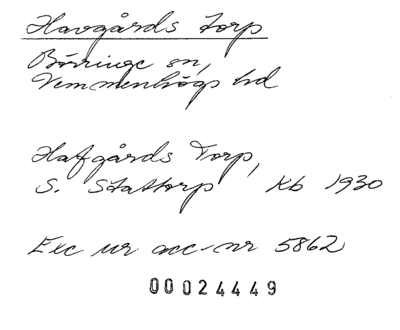 Havgårds torp
Börringe sn,
Vemmenhögs hd
Hafgårds Torp,
S. Stattorp Kb 1930
Exc ur acc-nr 5862
00024449